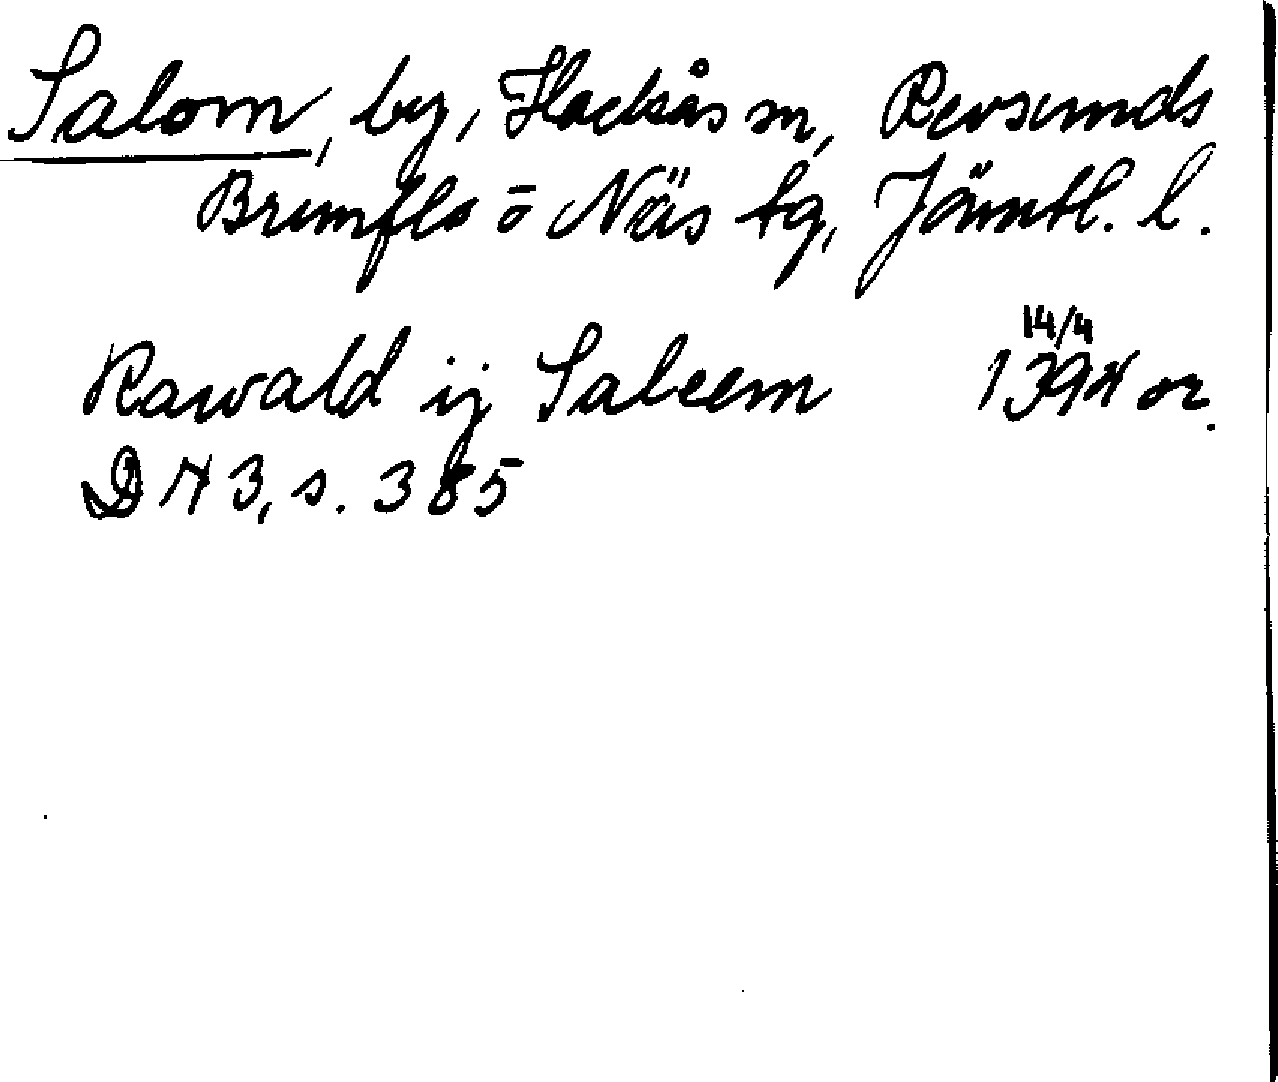 Salom, by, Hackås sn, Revsunds
Brunflo ō Näs tg, Jämtl. l.
14/4
Rawald ij Saleem 1394 or.
D 43, s. 385